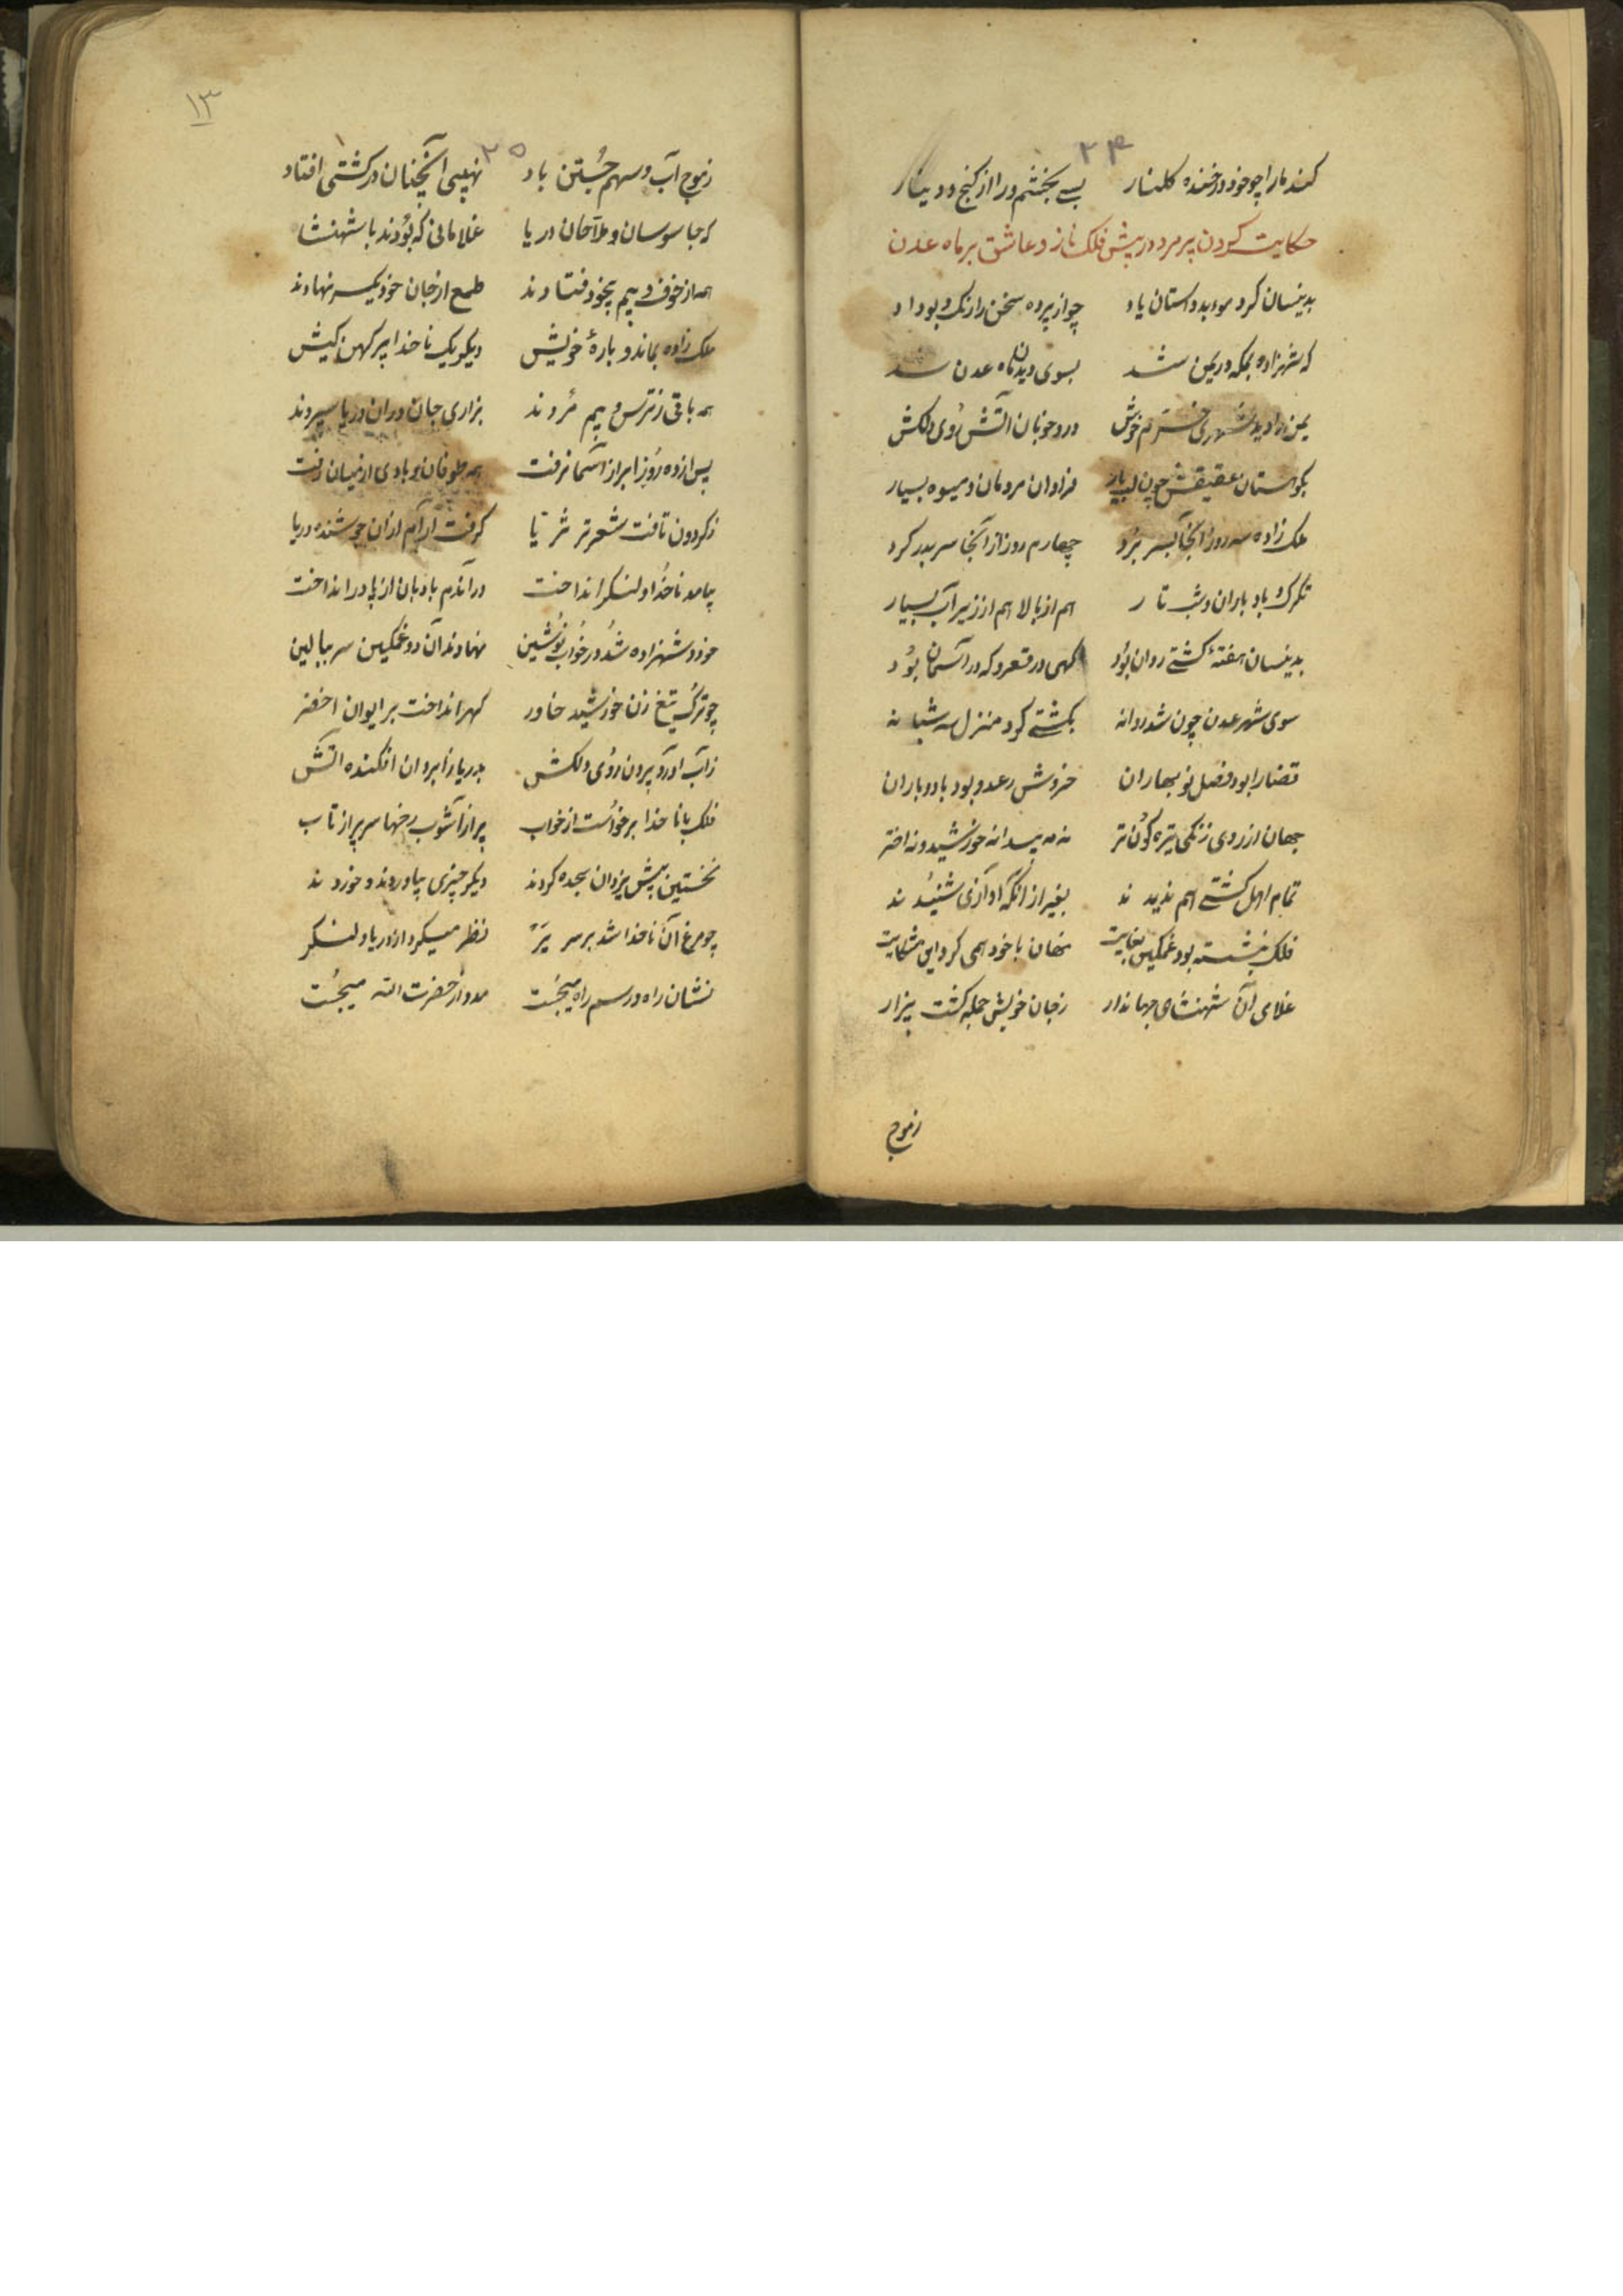 ۲۴
کند ما را چو خود در خنده گلنار بسی بخشم ورا از گنج و دینار
حکایت کردن پیر مرد در پیش فلک ناز و عاشق بر ماه عدن
بدینسان کرد موبد داستان یاد چو از پرده سخن را رنگ و بو داد
که شهزاده بمکه در یمن شد بسوی دیدن ماه عدن شد
یمن را دید شهری خرم خوش درو خوبان آتش روی دلکش
بکوهستان عقیقش چون لب یار فراوان مردمان و میوه بسیار
ملک زاده سه روز آنجا بسر برد چهارم روز از آنجا سر بدر کرد
تگرگ و باد و باران و شب تار هم از بالا هم از زیر آب بسیار
بدینسان هفته کشتی روان بود گهی در قعر و که در آسمان بود
سوی شهر عدن چون شد روانه بکشتی کرد منزل سه شبانه
قضا را بود فصل نوبهاران خروش رعد و بود باد و باران
جهان از روی زنگی تیره گون تر نه مه پیدا نه خورشید و نه اختر
تمام اهل کشتی هم ندیدند بغیر از آنکه آوازی شنیدند
فلک بنشسته بود غمگین بغایت نهان با خود همی کرد این شکایت
غلامی آن شهنشاه جهاندار ز جان خویش جمله گشت بیزار
ز موج
۱۳
۲۵
ز موج آب و سهم جستن باد نهیبی آنچنان در کشتی افتاد
که جاسوسان و ملاحان دریا غلامانی که بودند با شهنشا
همه از خوف و بیم بیخود فتادند طمع از جان خود یکسر نهادند
ملک زاده بماند و باره خویش دیگر یک ناخدا پیر کهن کیش
همه باقی ز ترس و بیم مردند بزاری جان در آن دریا سپردند
پس از ده روز ابر از آسمان رفت همه طوفان و بادی از میان رفت
ز گردون تافت شعر تر ثریا گرفت آرام از آن جوشنده دریا
بیامد ناخدا و لنگر انداخت در آندم بادبان از باد را انداخت
خود و شهزاده شد در خواب نوشین نهادند آن دو غمگین سر ببالین
چو ترک تیغ زن خورشید خاور گهر انداخت بر ایوان اخضر
ز آب آورد بیرون روی دلکش بدریا ز ابروان افکنده آتش
فلک با ناخدا برخواست از خواب پر از آشوب رخها سر پر از تاب
نخستین پیش یزدان سجده کردند دیگر چیزی بیاوردند و خوردند
چو مرغ آن ناخدا شد بر سر پر نظر میکرد از دریا و لنگر
نشان راه و رسم راه میجست مدد از حضرت الله میجست